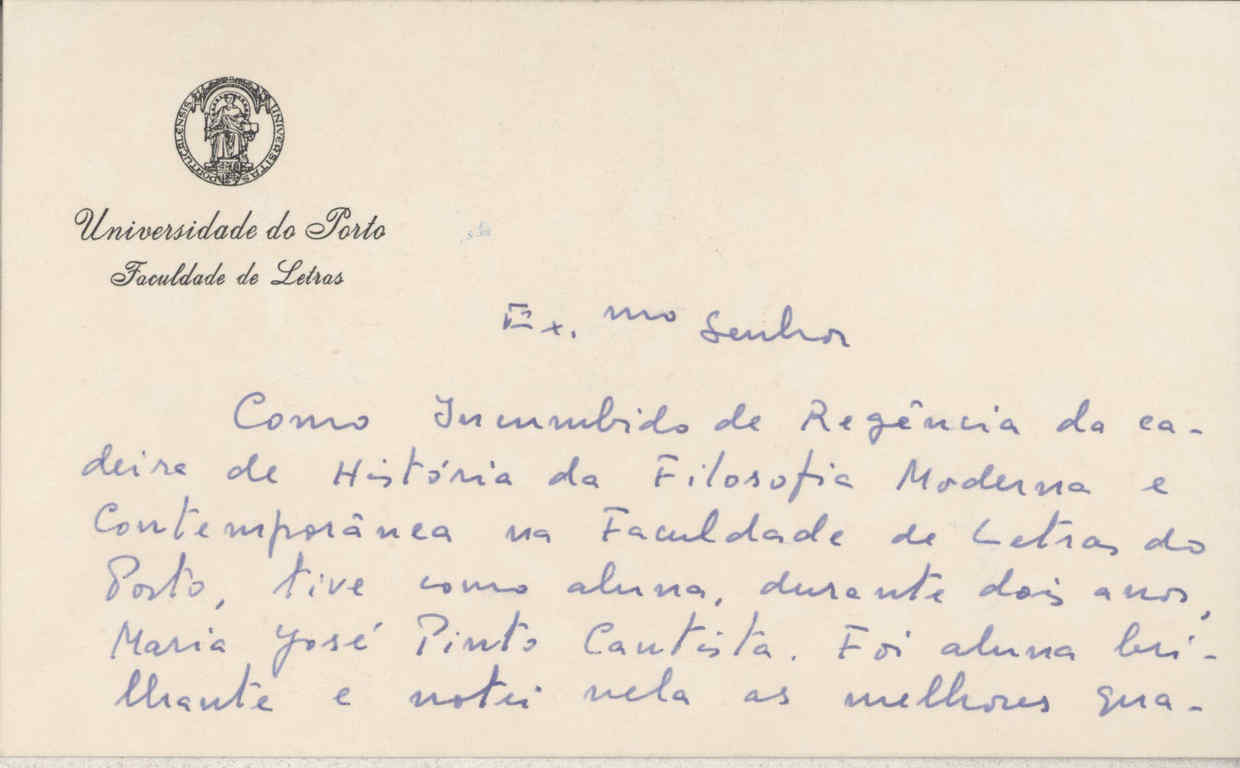 UNIVERSITAS PORTUCALENSIS
Universidade do Porto
Faculdade de Letras
Ex.mo Senhor
Como Incumbido de Regência da ca-
deira de História da Filosofia Moderna e
Contemporânea na Faculdade de Letras do
Porto, tive como aluna, durante dois anos,
Maria José Pinto Cantista. Foi aluna bri-
lhante e notei nela as melhores qua-